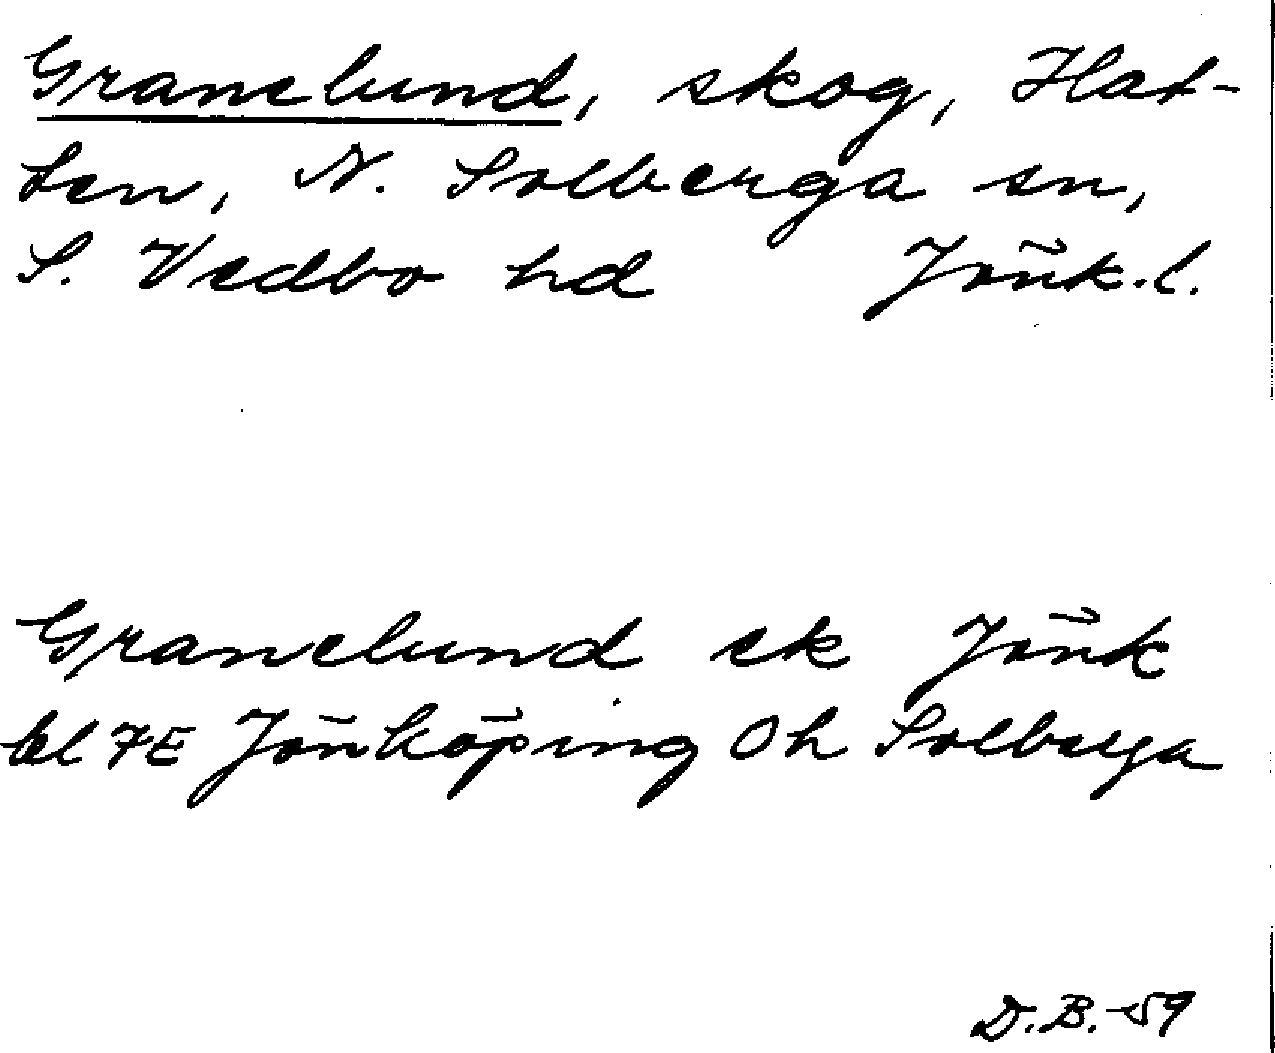 Granelund, skog, Hat-
ten, N. Solberga sn,
S. Vedbo hd Jönk. l.
Granelund ek Jönk
bl 7E Jönköping Oh Solberga
D.B. -59